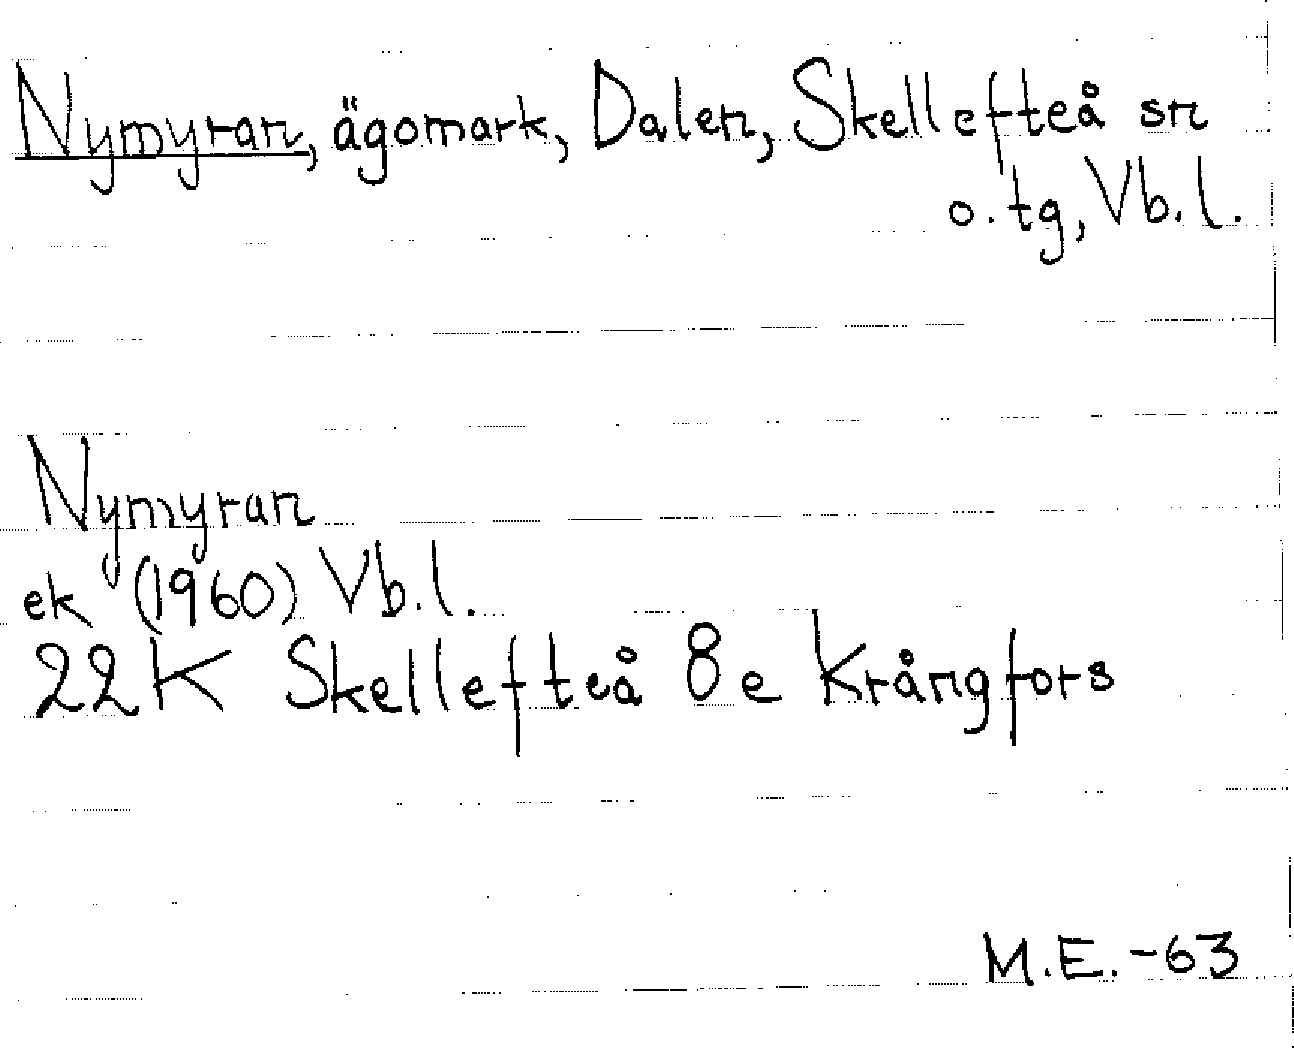 Nymyran, ägomark, Dalen, Skellefteå sn
o. tg, Vb. l.
Nymyran
ek (1960) Vb. l.
22K Skellefteå 8e Krångfors
M.E. -63